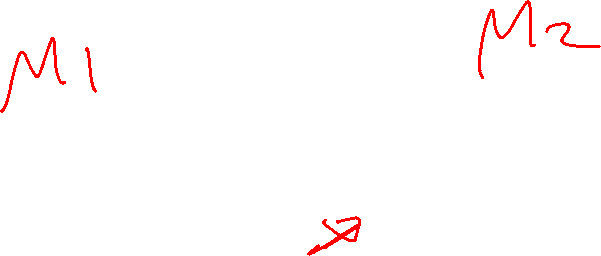 M1 M2